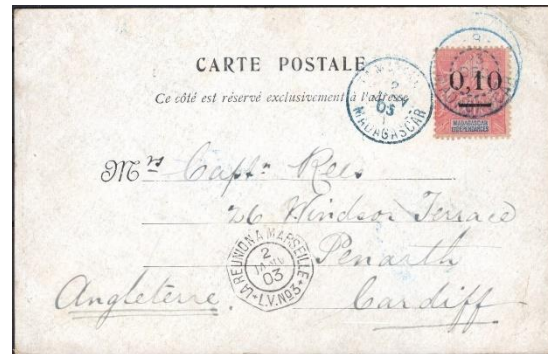 CARTE POSTALE
Ce côté est réservé exclusivement à l'adresse
0,10
MADAGASCAR
2
03
MADAGASCAR
ET DÉPENDANCES
Mrs Captn Rees
26 Windsor Terrace
Penarth
Cardiff
Angleterre.
LA REUNION A MARSEILLE
2
JANV
03
L.V. No3